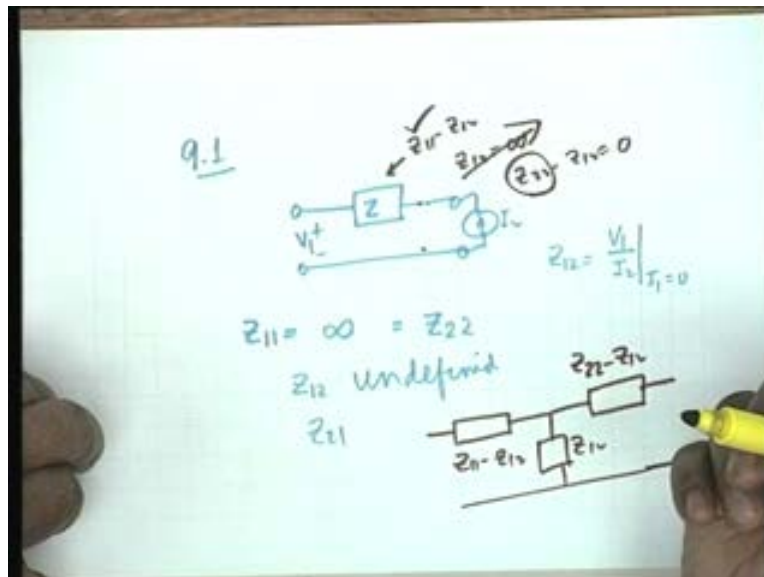 9.1
Z11 - Z12
Z12 = ∞
Z22 - Z12 = 0
Z
V1 + -
I2
Z12 = V1/I2 | I1=0
Z11 = ∞ = Z22
Z12 undefinid
Z21
Z22-Z12
Z11-Z12
Z12